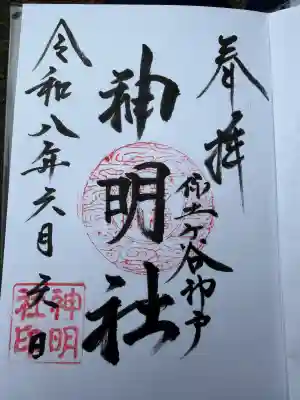 奉拝
保土ヶ谷神戸
神明社
令和八年六月六日
神明
社印